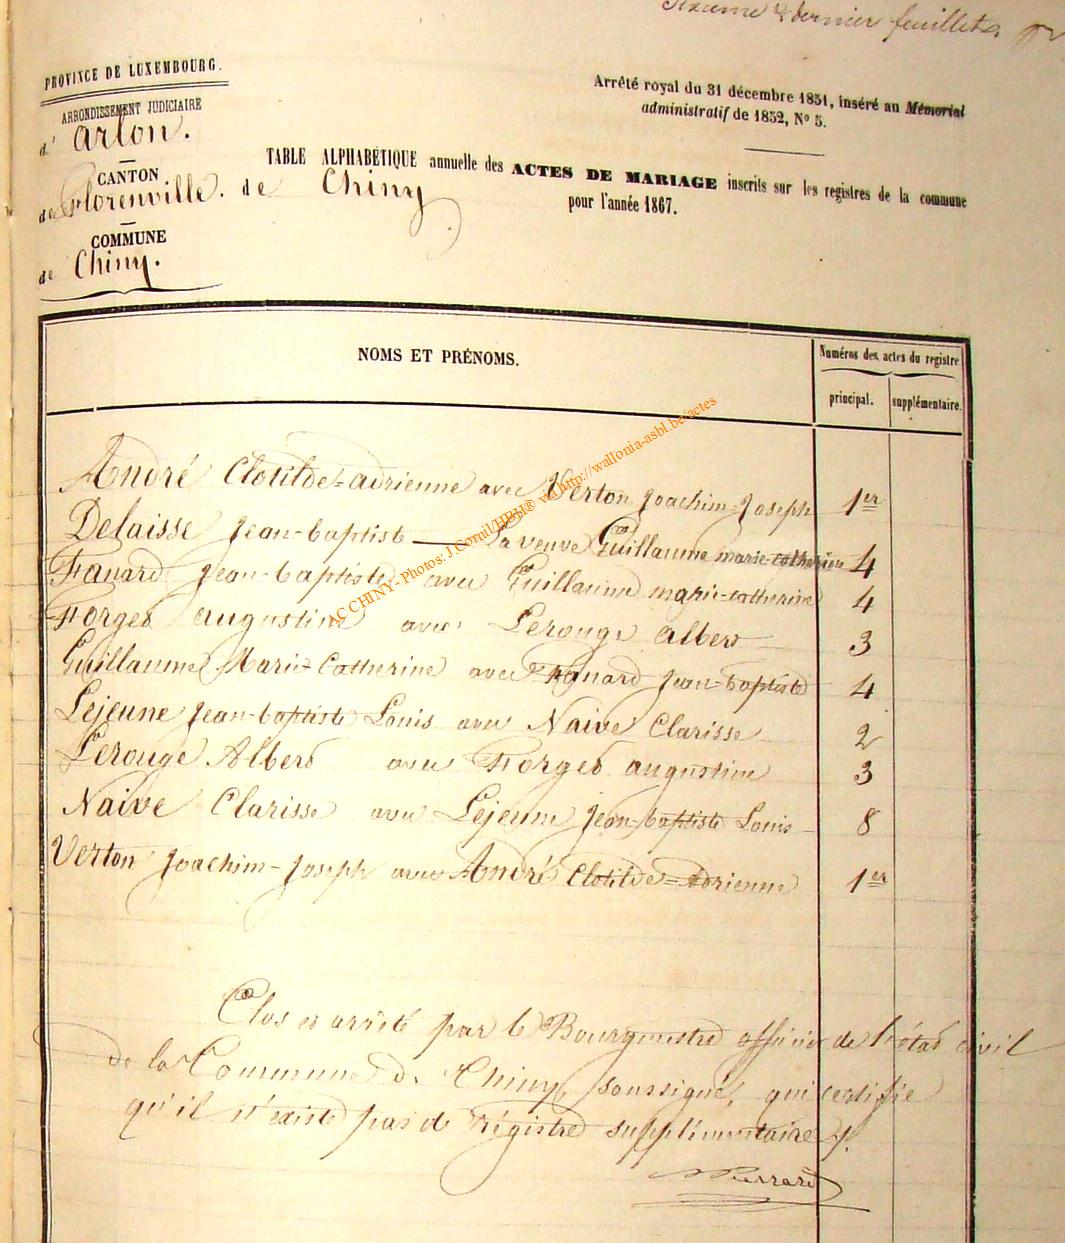 Sixième & dernier feuillet
PROVINCE DE LUXEMBOURG.
ARRONDISSEMENT JUDICIAIRE
d'Arlon.
CANTON
de Florenville.
COMMUNE
de Chiny.
Arrêté royal du 31 décembre 1851, inséré au Mémorial
administratif de 1852, No 5.
TABLE ALPHABÉTIQUE annuelle des ACTES DE MARIAGE inscrits sur les registres de la commune
de Chiny pour l'année 1867.
NOMS ET PRÉNOMS.
Numéros des actes du registre
principal. supplémentaire.
André Clotilde=adrienne avec Verton Joachim-Joseph 1er
Delaisse Jean-baptiste — La veuve Guillaume marie-catherine 4
Fanard Jean-baptiste avec Guillaume marie-catherine 4
Forget augustine avec Lerouge albert 3
Guillaume Marie-Catherine avec Fanard Jean-baptiste 4
Lejeune Jean-baptiste Louis avec Naive Clarisse 2
Lerouge Albert avec Forget augustine 3
Naive Clarisse avec Lejeune Jean-baptiste Louis 8
Verton Joachim-Joseph avec André Clotilde=Adrienne 1er
Clos et arrêté par le Bourgmestre officier de l'état civil
de la Commune de Chiny, soussigné, qui certifie
qu'il n'existe pas de régistre supplémentaire
Pierrard
AC CHINY - Photos: J.Cornil/HBH® via http://wallonia-asbl.be/actes